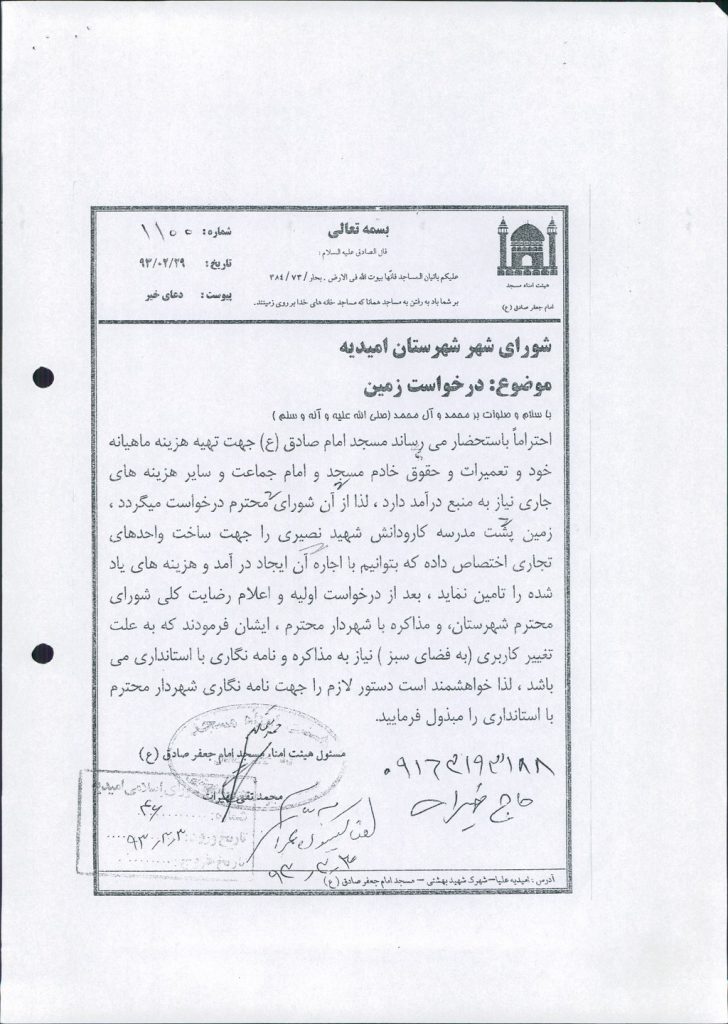 بسمه تعالی
قال الصادق علیه السلام :
علیکم باتیان المساجد فانّها بیوت الله فی الارض . بحار / ۷۳ / ۳۸٤
بر شما باد به رفتن به مساجد همانا که مساجد خانه های خدا بر روی زمینند.
شماره : ۱۱۰۰
تاریخ : ۹۳/۰۲/۲۹
پیوست : دعای خیر
هیئت امناء مسجد
امام جعفر صادق (ع)
شورای شهر شهرستان امیدیه
موضوع: درخواست زمین
با سلام و صلوات بر محمد و آل محمد (صلی الله علیه و آله و سلم )
احتراماً باستحضار می رساند مسجد امام صادق (ع) جهت تهیه هزینه ماهیانه
خود و تعمیرات و حقوق خادم مسجد و امام جماعت و سایر هزینه های
جاری نیاز به منبع درآمد دارد ، لذا از آن شورای محترم درخواست میگردد ،
زمین پشت مدرسه کارودانش شهید نصیری را جهت ساخت واحدهای
تجاری اختصاص داده که بتوانیم با اجاره آن ایجاد در آمد و هزینه های یاد
شده را تامین نماید ، بعد از درخواست اولیه و اعلام رضایت کلی شورای
محترم شهرستان، و مذاکره با شهردار محترم ، ایشان فرمودند که به علت
تغییر کاربری (به فضای سبز ) نیاز به مذاکره و نامه نگاری با استانداری می
باشد ، لذا خواهشمند است دستور لازم را جهت نامه نگاری شهردار محترم
با استانداری را مبذول فرمایید.
مسئول هیئت امناء مسجد امام جعفر صادق (ع)
محمد تقی خیرات
حاج خیرات
شورای اسلامی امیدیه
شماره: ۴۶
تاریخ ورود: ۹۳/۳/۳
۹۳/۳/۳
آدرس : امیدیه علیا – شهرک شهید بهشتی – مسجد امام جعفر صادق (ع)